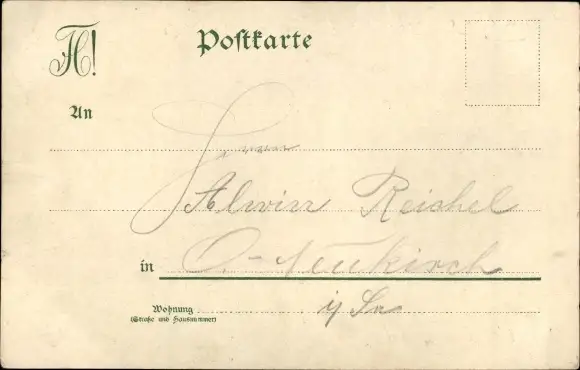 FH!
Postkarte
An
Herrn
Alwin Reichel
in O.-Neukirch
Wohnung i/ Sa
(Straße und Hausnummer)